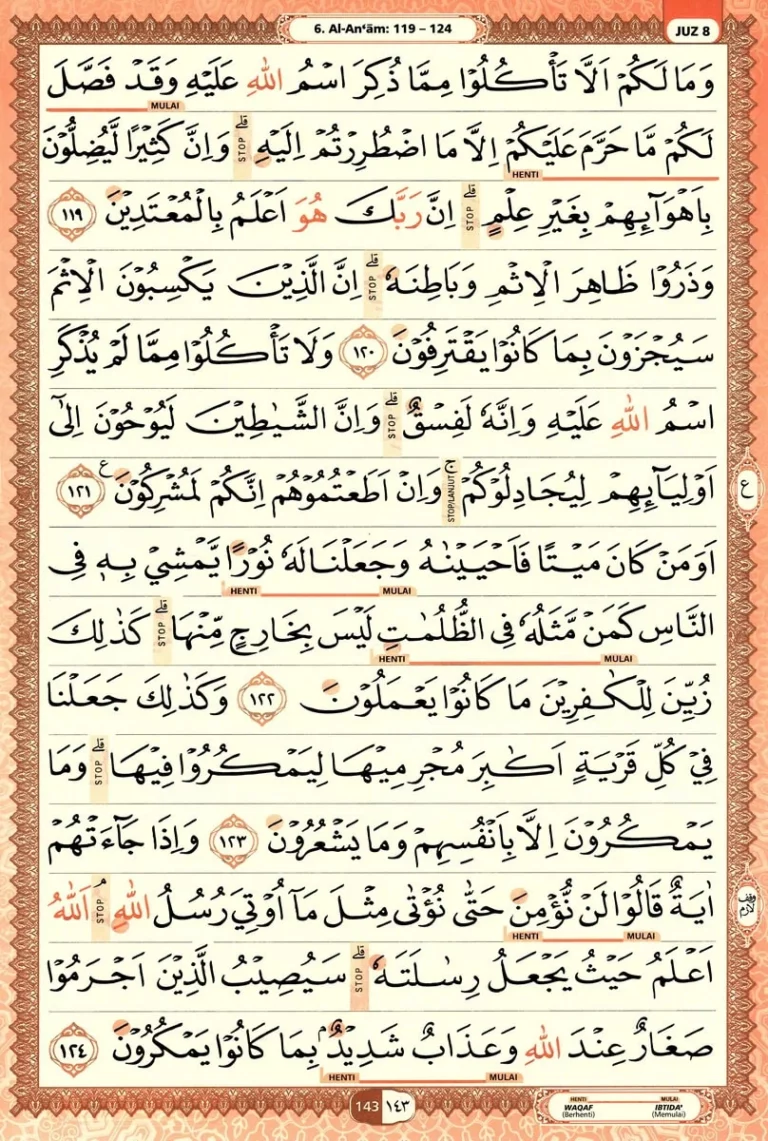 6. Al-An‘ām: 119 – 124
JUZ 8
وَمَا لَكُمْ اَلَّا تَأْكُلُوْا مِمَّا ذُكِرَ اسْمُ اللّٰهِ عَلَيْهِ وَقَدْ فَصَّلَ
MULAI
لَكُمْ مَّا حَرَّمَ عَلَيْكُمْ اِلَّا مَا اضْطُرِرْتُمْ اِلَيْهِ ۗ STOP وَاِنَّ كَثِيْرًا لَّيُضِلُّوْنَ
HENTI
بِاَهْوَاۤىِٕهِمْ بِغَيْرِ عِلْمٍ ۗ STOP اِنَّ رَبَّكَ هُوَ اَعْلَمُ بِالْمُعْتَدِيْنَ ١١٩
وَذَرُوْا ظَاهِرَ الْاِثْمِ وَبَاطِنَهٗ ۗ STOP اِنَّ الَّذِيْنَ يَكْسِبُوْنَ الْاِثْمَ
سَيُجْزَوْنَ بِمَا كَانُوْا يَقْتَرِفُوْنَ ١٢٠ وَلَا تَأْكُلُوْا مِمَّا لَمْ يُذْكَرِ
اسْمُ اللّٰهِ عَلَيْهِ وَاِنَّهٗ لَفِسْقٌ ۗ STOP وَاِنَّ الشَّيٰطِيْنَ لَيُوْحُوْنَ اِلٰٓى
اَوْلِيَاۤىِٕهِمْ لِيُجَادِلُوْكُمْ ۚ STOP/LANJUT وَاِنْ اَطَعْتُمُوْهُمْ اِنَّكُمْ لَمُشْرِكُوْنَ ع ١٢١
ع
اَوَمَنْ كَانَ مَيْتًا فَاَحْيَيْنٰهُ وَجَعَلْنَا لَهٗ نُوْرًا يَّمْشِيْ بِهٖ فِى
MULAI HENTI
النَّاسِ كَمَنْ مَّثَلُهٗ فِى الظُّلُمٰتِ لَيْسَ بِخَارِجٍ مِّنْهَا ۗ STOP كَذٰلِكَ
MULAI HENTI
زُيِّنَ لِلْكٰفِرِيْنَ مَا كَانُوْا يَعْمَلُوْنَ ١٢٢ وَكَذٰلِكَ جَعَلْنَا
فِيْ كُلِّ قَرْيَةٍ اَكٰبِرَ مُجْرِمِيْهَا لِيَمْكُرُوْا فِيْهَا ۗ STOP وَمَا
يَمْكُرُوْنَ اِلَّا بِاَنْفُسِهِمْ وَمَا يَشْعُرُوْنَ ١٢٣ وَاِذَا جَاۤءَتْهُمْ
اٰيَةٌ قَالُوْا لَنْ نُّؤْمِنَ حَتّٰى نُؤْتٰى مِثْلَ مَآ اُوْتِيَ رُسُلُ اللّٰهِ ۘ STOP اَللّٰهُ
وقف لازم
MULAI HENTI
اَعْلَمُ حَيْثُ يَجْعَلُ رِسٰلَتَهٗ ۗ STOP سَيُصِيْبُ الَّذِيْنَ اَجْرَمُوْا
صَغَارٌ عِنْدَ اللّٰهِ وَعَذَابٌ شَدِيْدٌۢ بِمَا كَانُوْا يَمْكُرُوْنَ ١٢٤
MULAI HENTI
143 ١٤٣
HENTI MULAI
WAQAF IBTIDA'
(Berhenti) (Memulai)